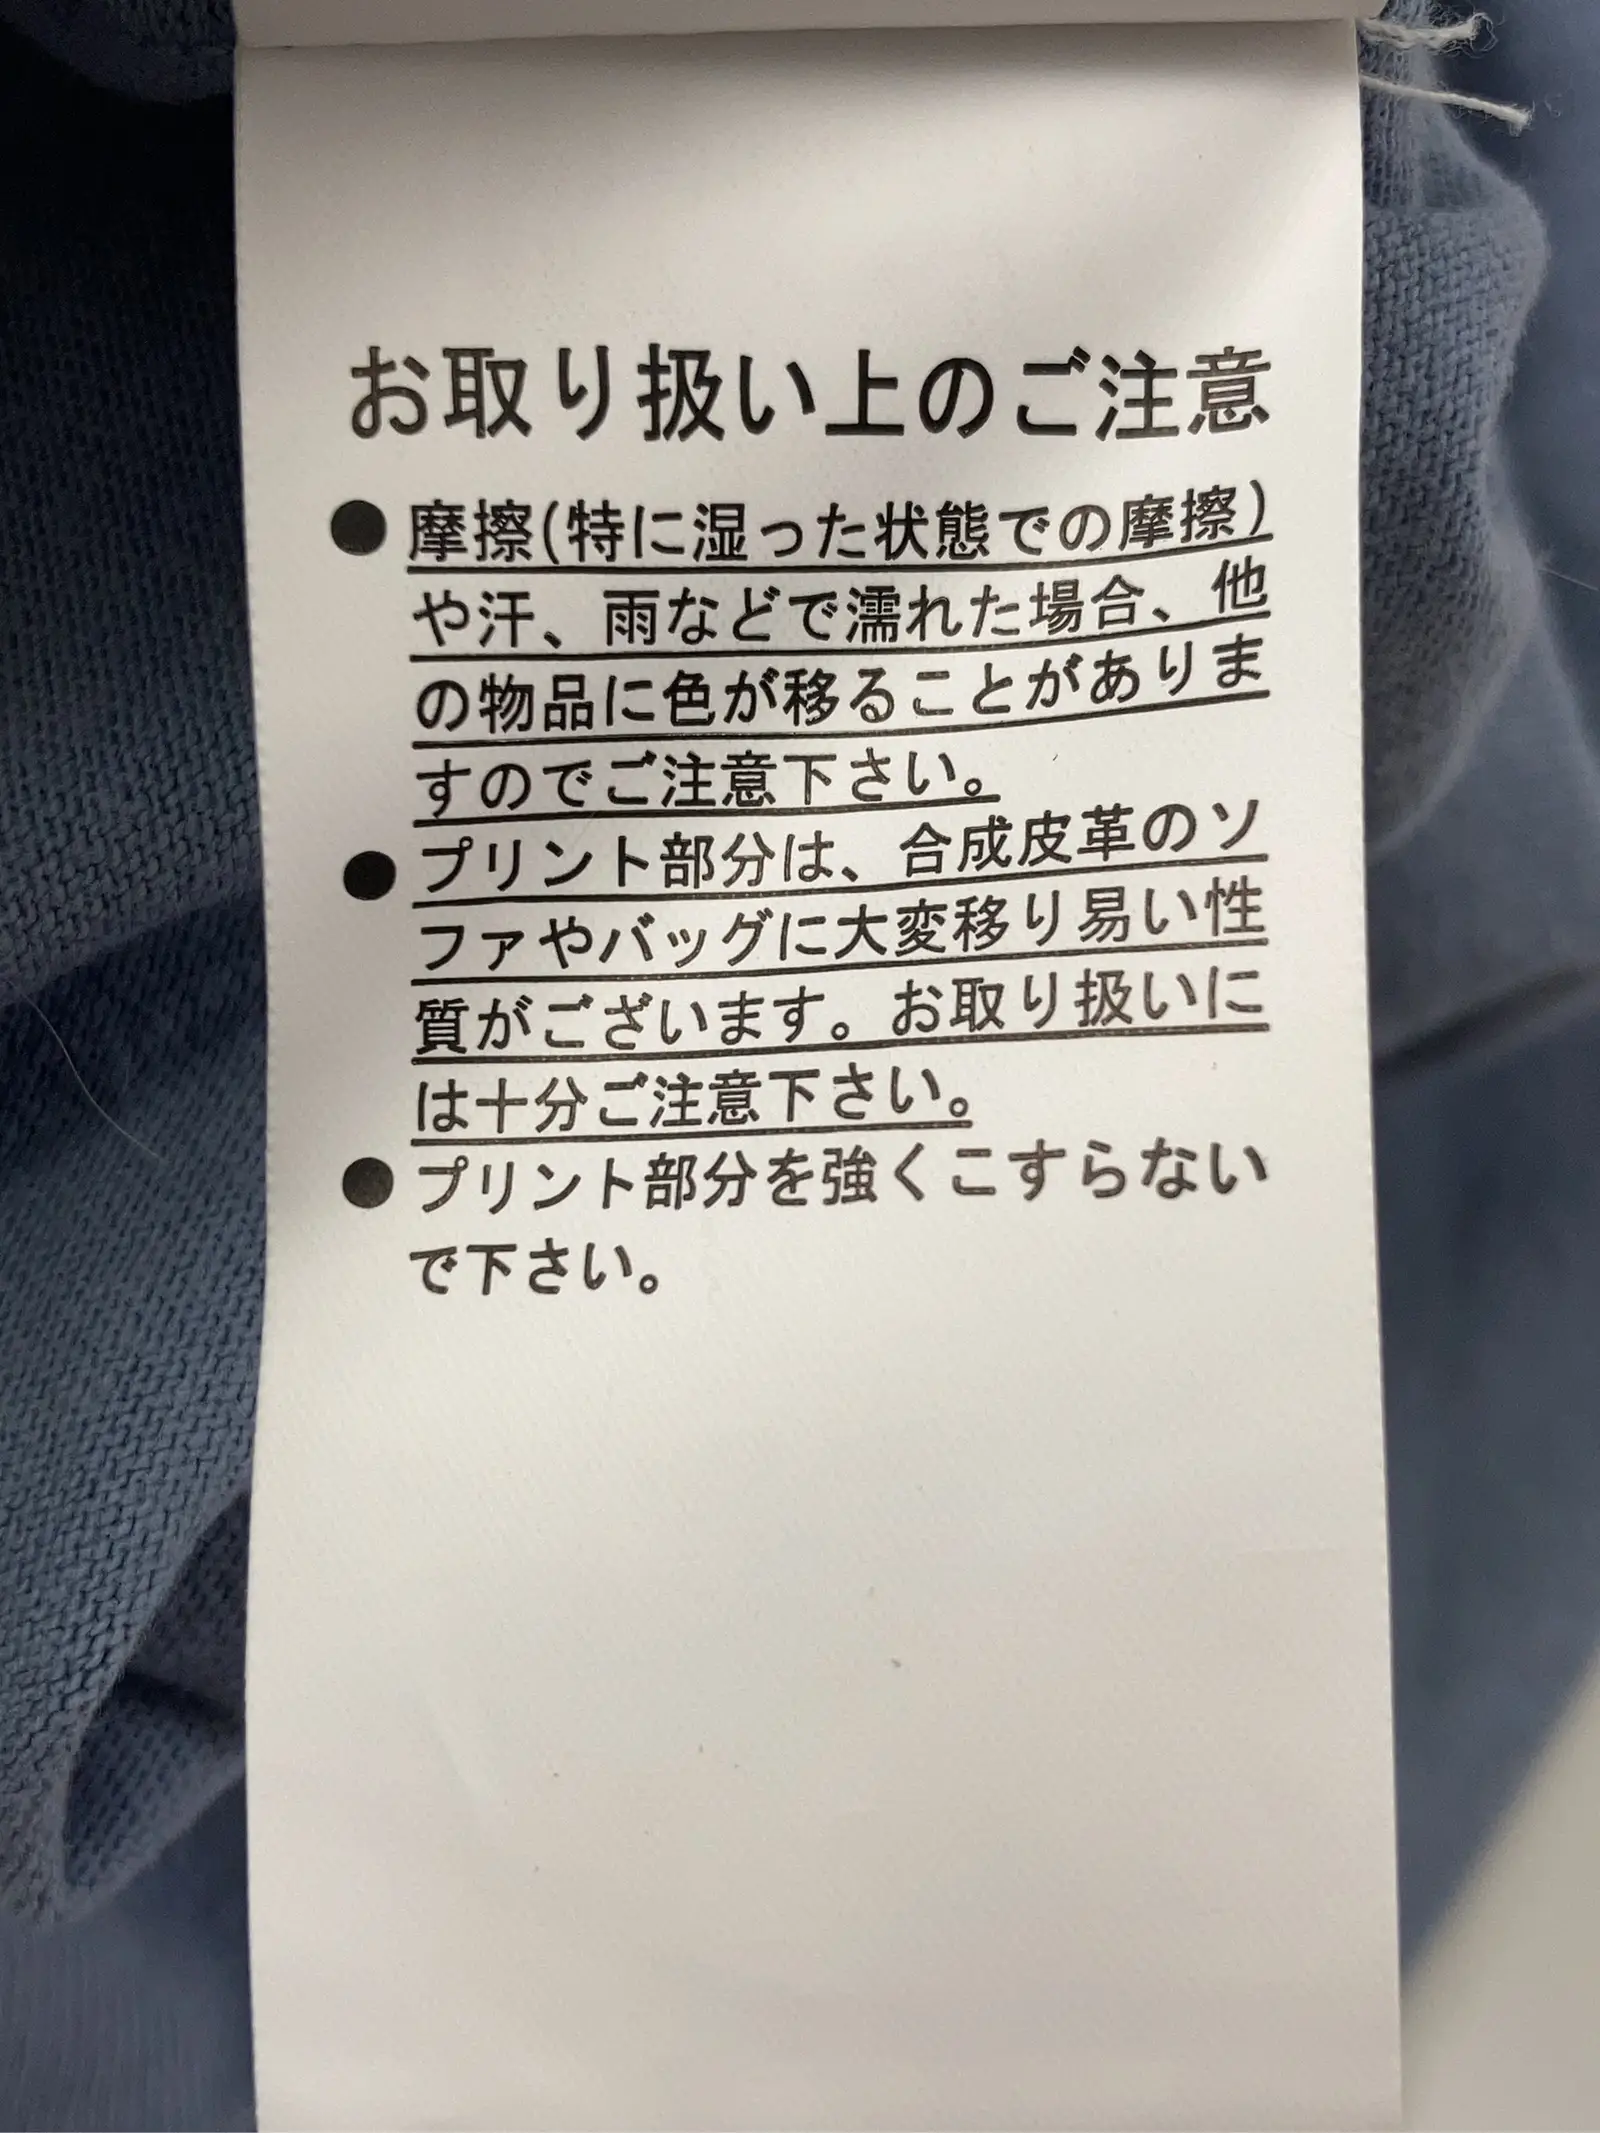 お取り扱い上のご注意
●摩擦(特に湿った状態での摩擦)
や汗、雨などで濡れた場合、他
の物品に色が移ることがありま
すのでご注意下さい。
●プリント部分は、合成皮革のソ
ファやバッグに大変移り易い性
質がございます。お取り扱いに
は十分ご注意下さい。
●プリント部分を強くこすらない
で下さい。